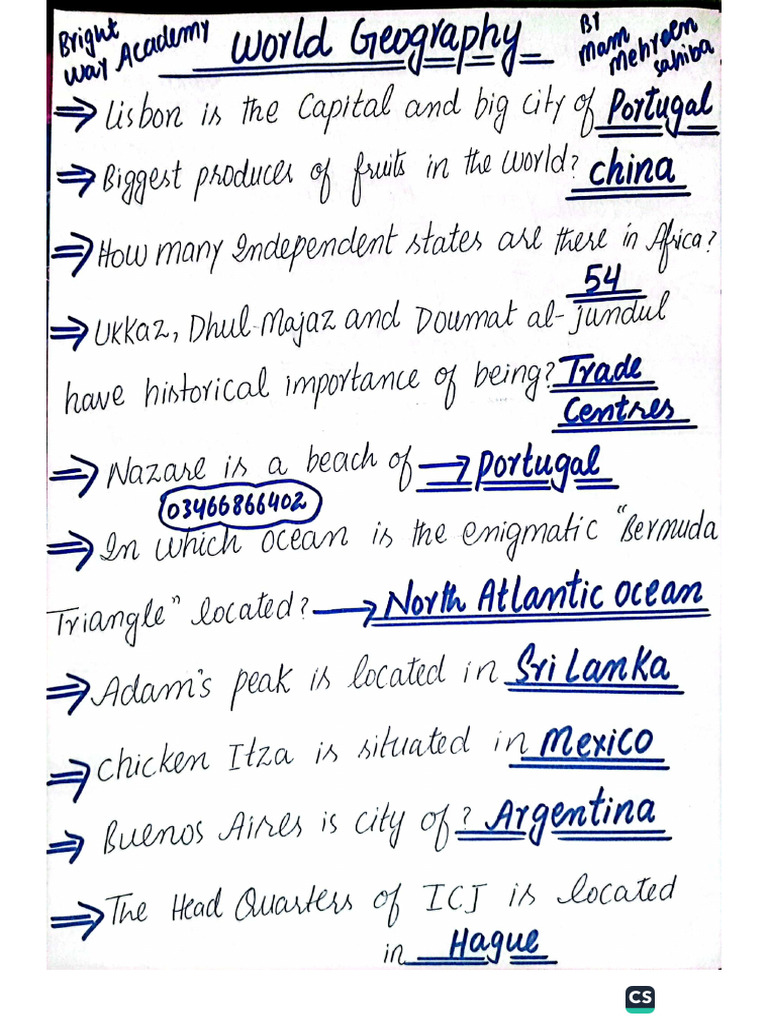 Bright
Way Academy
World Geography
By
Mam
Mehreen
Sahiba
⇒ Lisbon is the Capital and big city of Portugal
⇒ Biggest producer of fruits in the world? China
⇒ How many Independent states are there in Africa?
54
⇒ Ukkaz, Dhul-Majaz and Doumat al-Jundul
have historical importance of being? Trade
Centres
⇒ Nazare is a beach of → Portugal
03466866402
⇒ In which ocean is the enigmatic "Bermuda
Triangle" located? → North Atlantic Ocean
⇒ Adam's peak is located in Sri Lanka
⇒ Chicken Itza is situated in Mexico
⇒ Buenos Aires is city of? Argentina
⇒ The Head Quarters of ICJ is located
in Hague
CS